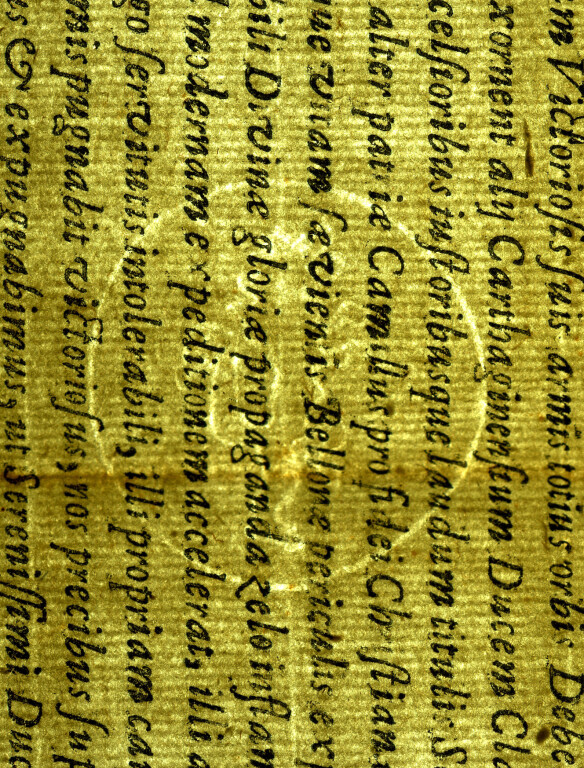 m Victorioſus ſuis armis totius orbis Debe
xornent alij Carthaginenſium Ducem Cla
celſioribus iuſtioribusque laudum titulis S
alter patriæ Camillus pro fidei Chriſtian
ue vitam ſævientis Bellonæ periculis exp
bili Divinæ gloriæ propagandæ zelo inflam
modernam expeditionem accelerat, illi
go ſervitutis intolerabili, illi propriam ca
mis pugnabit victorioſus, nos precibus ſup
us & expugnabimus, ut Sereniſſimi Duc